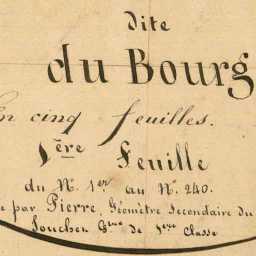 Dite
du Bourg
En cinq feuilles.
1ère Feuille
du N°. 1er au N°. 240.
par Pierre, Géomètre Secondaire du
de 1ère Classe